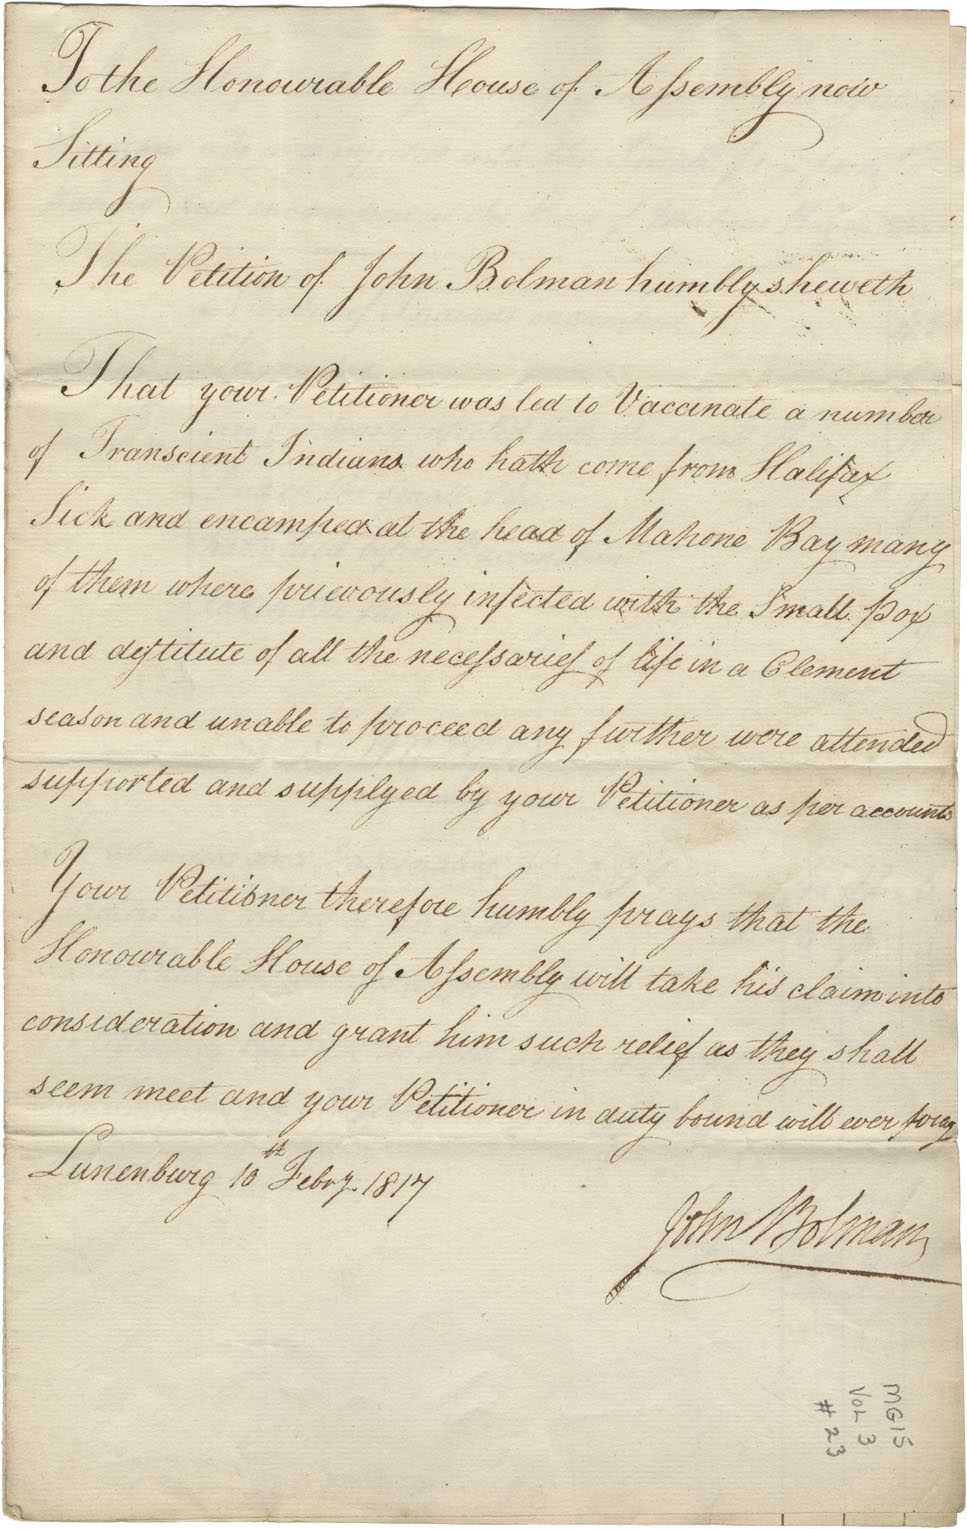 To the Honourable House of Assembly now
Sitting
The Petition of John Bolman humbly sheweth
That your Petitioner was led to Vaccinate a number
of Transcient Indians who hath come from Halifax
Sick and encamped at the head of Mahone Bay many
of them where prievously infected with the Small pox
and destitute of all the necessaries of life in a Clement
season and unable to proceed any further were attended
supported and supplyed by your Petitioner as per accounts
Your Petitioner therefore humbly prays that the
Honourable House of Assembly will take his claim into
consideration and grant him such relief as they shall
seem meet and your Petitioner in duty bound will ever pray
Lunenburg 10th Febry. 1817
John Bolman
MG15
VOL 3
# 23